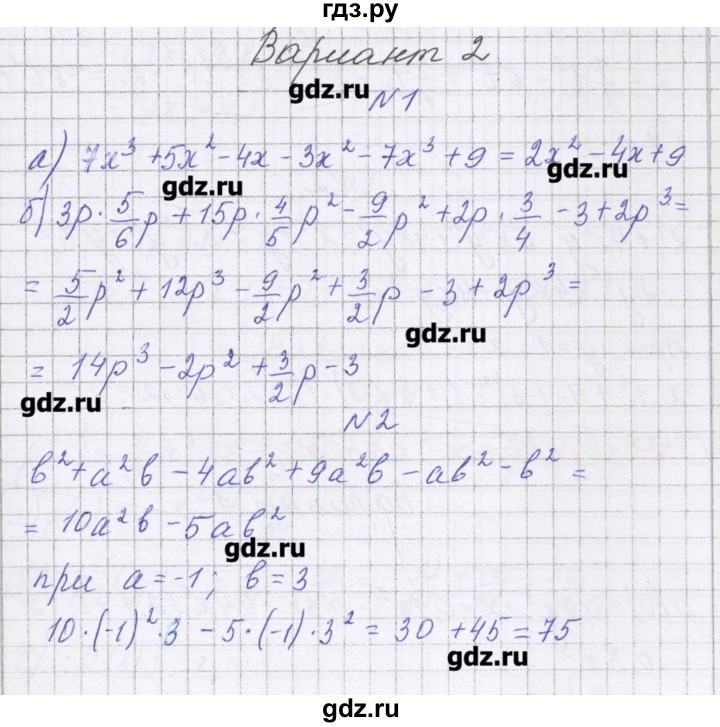 гдз.ру
Вариант 2
gdz.ru
№1
а) 7x³ + 5x² - 4x - 3x² - 7x³ + 9 = 2x² - 4x + 9
gdz.ru
gdz.ru
б) 3p · 5/6 p + 15p · 4/5 p² - 9/2 p² + 2p · 3/4 - 3 + 2p³ =
= 5/2 p² + 12p³ - 9/2 p² + 3/2 p - 3 + 2p³ =
gdz.ru
= 14p³ - 2p² + 3/2 p - 3
gdz.ru
№2
b² + a²b - 4ab² + 9a²b - ab² - b² =
= 10a²b - 5ab²
gdz.ru
при a = -1; b = 3
10 · (-1)² · 3 - 5 · (-1) · 3² = 30 + 45 = 75
gdz.ru
gdz.ru